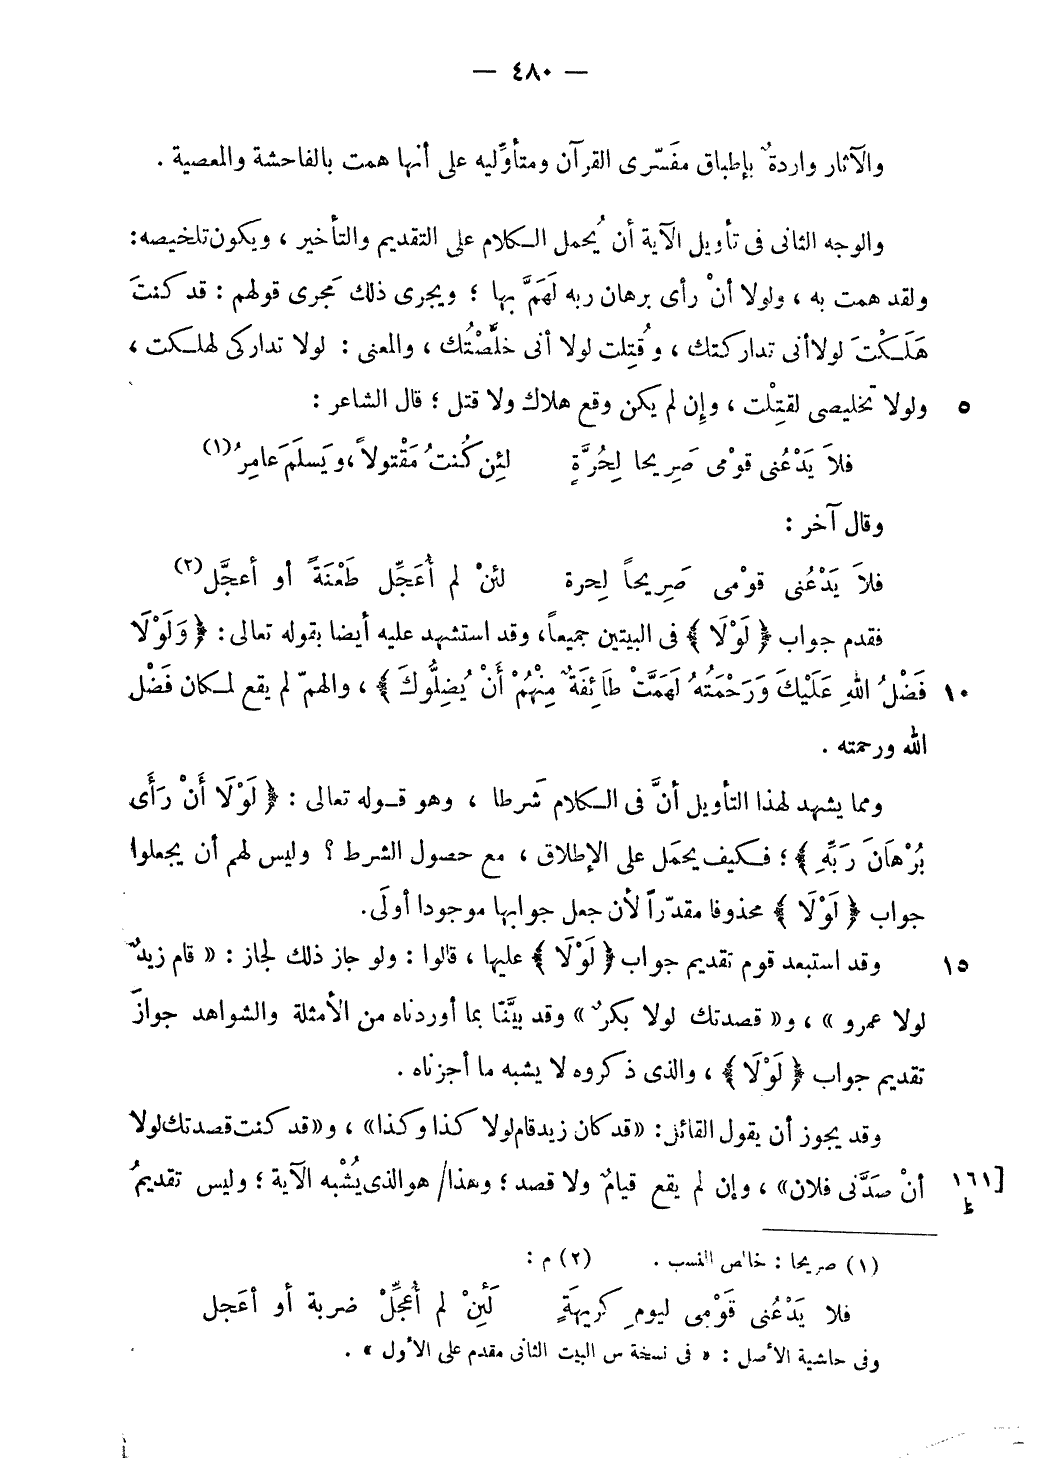 — ٤٨٠ —
والآثار واردةٌ بإطباق مفَسّرى القرآن ومتأوِّليه على أنها همت بالفاحشة والمعصية .
والوجه الثانى فى تأويل الآية أن يُحمل الكلام على التقديم والتأخير ، ويكون تلخيصه:
ولقد همت به ، ولولا أنْ رأى برهان ربه لَهَمَّ بها ؛ ويجرى ذلك مَجرى قولهم : قد كنتَ
هَلَكْتَ لولا أنى تداركتك ، وقُتِلت لولا أنى خلَّصْتُك ، والمعنى : لولا تداركى لهلكت ،
٥ ولولا تخليصى لقتِلْت ، وإن لم يكن وقع هلاك ولا قتل ؛ قال الشاعر :
فلاَ يَدْعُنى قوْمى صَرِيحا لِحُرَّةٍ لئِن كُنتُ مَقْتولاً ، ويَسلَمَ عامِرُ (١)
وقال آخر :
فلاَ يَدْعُنى قوْمى صَرِيحاً لِحرة لئنْ لم أُعَجِّل طَعْنَةً أو أعجَّل (٢)
فقدم جواب ﴿ لَوْلَا ﴾ فى البيتين جميعاً، وقد استشهد عليه أيضا بقوله تعالى: ﴿ وَلَوْلَا
١٠ فَضْلُ اللهِ عَلَيْكَ وَرَحْمَتُهُ لَهَمَّتْ طَائِفَةٌ مِنْهُمْ أَنْ يُضِلُّوكَ ﴾ ، والهمّ لم يقع لمكان فضْل
الله ورحمته .
ومما يشهد لهذا التأويل أنَّ فى الكلام شَرطا ، وهو قوله تعالى : ﴿ لَوْلَا أَنْ رَأَى
بُرْهَانَ رَبِّهِ ﴾ ؛ فكيف يحمَل على الإطلاق ، مع حصول الشرط ؟ وليس لهم أن يجعلوا
جواب ﴿ لَوْلَا ﴾ محذوفا مقدّراً لأن جعل جوابها موجودا أولَى.
١٥ وقد استبعد قوم تقديم جواب ﴿ لَوْلَا ﴾ عليها ، قالوا : ولو جاز ذلك لجاز : « قام زيدٌ
لولا عمرو » ، و« قصدتك لولا بكرٌ » وقد بيَّنّا بما أوردناه من الأمثلة والشواهد جوازَ
تقديم جواب ﴿ لَوْلَا ﴾ ، والذى ذكروه لا يشبه ما أجزناه .
وقد يجوز أن يقول القائل: «قد كان زيد قام لولا كذا وكذا» ، و«قد كنت قصدتك لولا
[١٦١ ظ أنْ صدَّنى فلان» ، وإن لم يقع قيامٌ ولا قصد ؛ وهذا/ هو الذى يُشْبه الآية ؛ وليس تقديمُ
(١) صريحا : خالص النسب . (٢) م :
فلا يَدْعُنى قَوْمِى ليومِ كريهَةٍ لَئِنْ لم أُعجِّلْ ضربة أو أعَجل
وفى حاشية الأصل : « فى نسخة س البيت الثانى مقدم على الأول » .